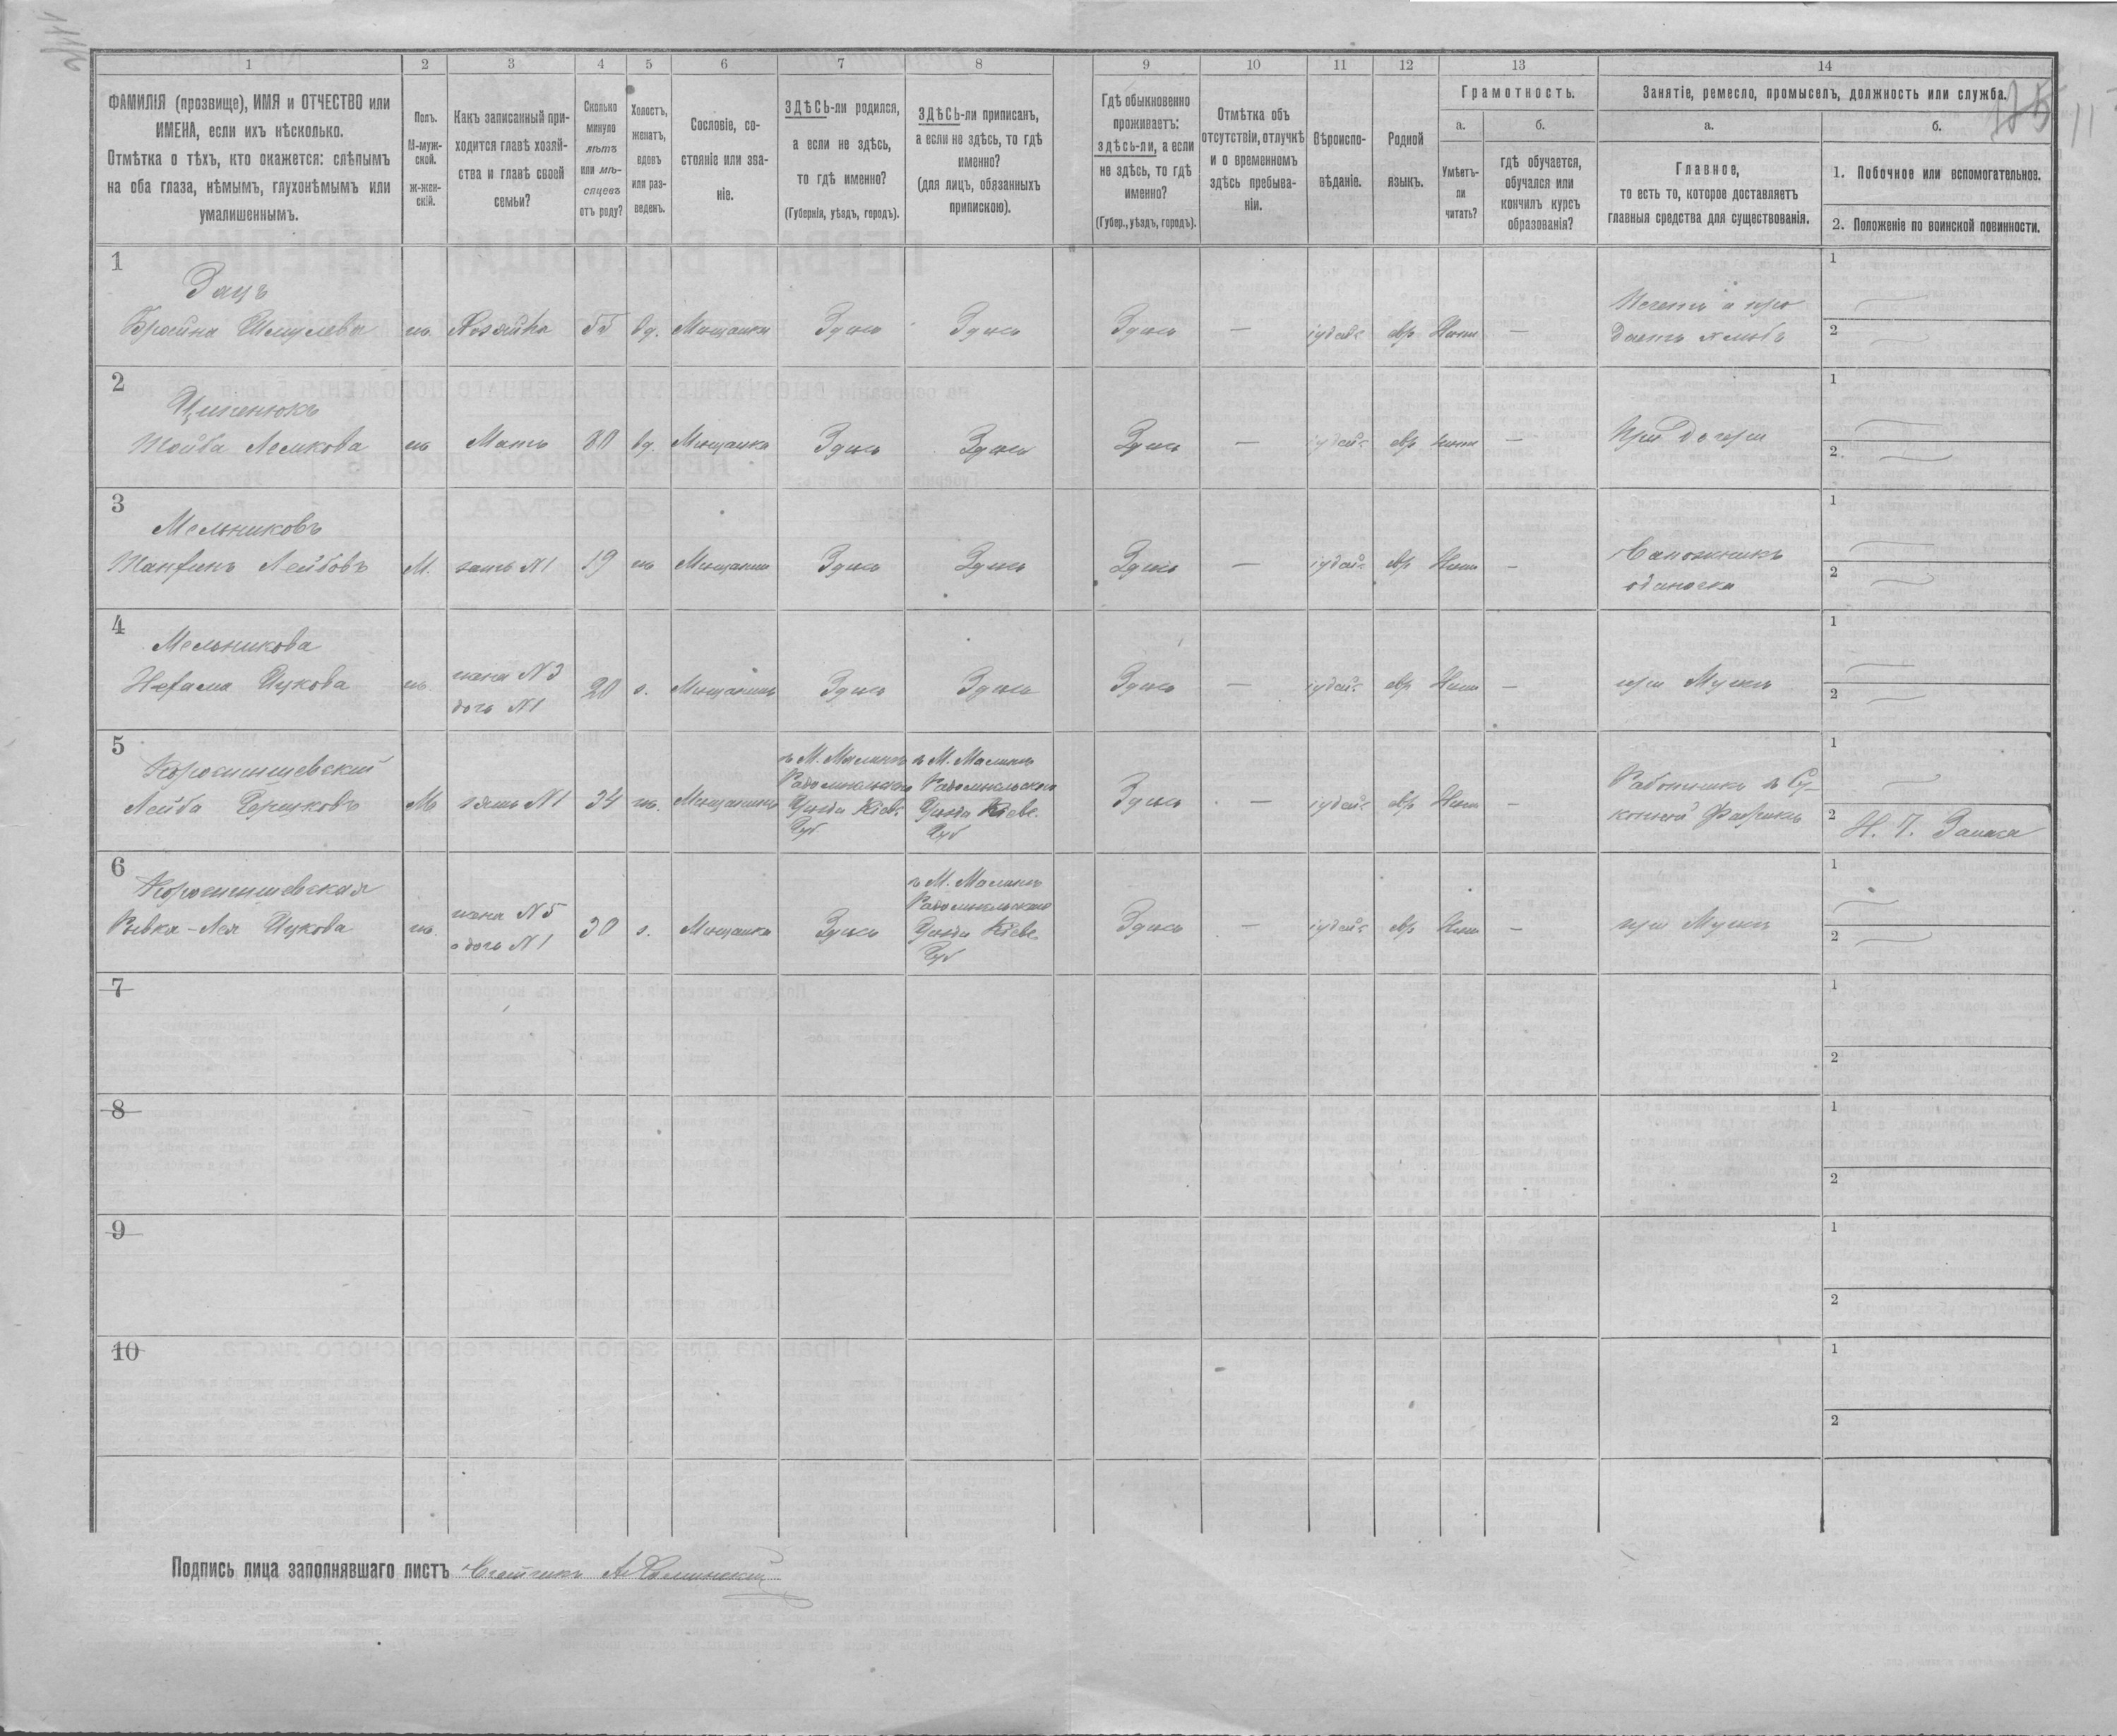 116
185
11
1
2
3
4
5
6
7
8
9
10
11
12
13
14
ФАМИЛІЯ (прозвище), ИМЯ и ОТЧЕСТВО или
ИМЕНА, если ихъ нѣсколько.
Отмѣтка о тѣхъ, кто окажется: слѣпымъ
на оба глаза, нѣмымъ, глухонѣмымъ или
умалишеннымъ.
Полъ.
М-муж-
ской.
ж-жен-
скій.
Какъ записанный при-
ходится главѣ хозяй-
ства и главѣ своей
семьи?
Сколько
минуло
лѣтъ
или мѣ-
сяцевъ
отъ роду?
Холостъ,
женатъ,
вдовъ
или раз-
веденъ.
Сословіе, со-
стояніе или зва-
ніе.
ЗДѢСЬ-ли родился,
а если не здѣсь,
то гдѣ именно?
(Губернія, уѣздъ, городъ).
ЗДѢСЬ-ли приписан,
а если не здѣсь, то гдѣ
именно?
(для лицъ, обязанныхъ
припискою).
Гдѣ обыкновенно
проживаетъ:
здѣсь-ли, а если
не здѣсь, то гдѣ
именно?
(Губер., уѣздъ, городъ).
Отмѣтка объ
отсутствіи, отлучкѣ
и о временномъ
здѣсь пребыва-
ніи.
Вѣроиспо-
вѣданіе.
Родной
языкъ.
Грамотность.
а.
Умѣетъ-
ли
читать?
б.
гдѣ обучается,
обучался или
кончилъ курсъ
образованія?
Занятіе, ремесло, промыселъ, должность или служба.
а.
Главное,
то есть то, которое доставляетъ
главныя средства для существованія.
б.
1. Побочное или вспомогательное.
2. Положеніе по воинской повинности.
1
Зацъ
Брайна Шмулева
ж. Хозяйка 55 вд. Мѣщанка Здѣсь Здѣсь Здѣсь — іудейс евр Нѣтъ —
Печетъ и про
даетъ хлѣбъ
1
2
2
Тойба
ж Мать 80 вд. Мѣщанка Здѣсь Здѣсь Здѣсь — іудейс евр нѣтъ — При дочери
1
2
3
Мельниковъ
Лейбовъ
М. зять №1 19 ж Мѣщанин Здѣсь Здѣсь Здѣсь — іудейс евр Нѣтъ —
Сапожникъ
одиночка
1
2
4
Мельникова
Нехама Ицкова
ж. жена №3
дочь №1
20 з. Здѣсь Здѣсь Здѣсь — іудейс евр Нѣтъ — при Мужѣ
1
2
5
Коростишевский
Лейба
М зять №1 34 ж. Мѣщанинъ
в М. Малинѣ
Радомысльскаго
Уѣзда Кіевс
Губ
в М. Малинѣ
Радомысльскаго
Уѣзда Кіевс.
Губ
Здѣсь — іудейс евр Нѣтъ —
Работникъ в Су-
конной Фабрикѣ
1
2 Н. Ч. Запаса
6
Коростишевская
Ривка-Лея Ицкова
ж. жена №5
и дочь №1
30 з. Мѣщанка Здѣсь
в М. Малинѣ
Радомысльскаго
Уѣзда Кіевс.
Губ
Здѣсь — іудейс евр Нѣтъ — при Мужѣ
1
2
7
1
2
8
1
2
9
1
2
10
1
2
Подпись лица заполнявшаго листъ Счетчикъ